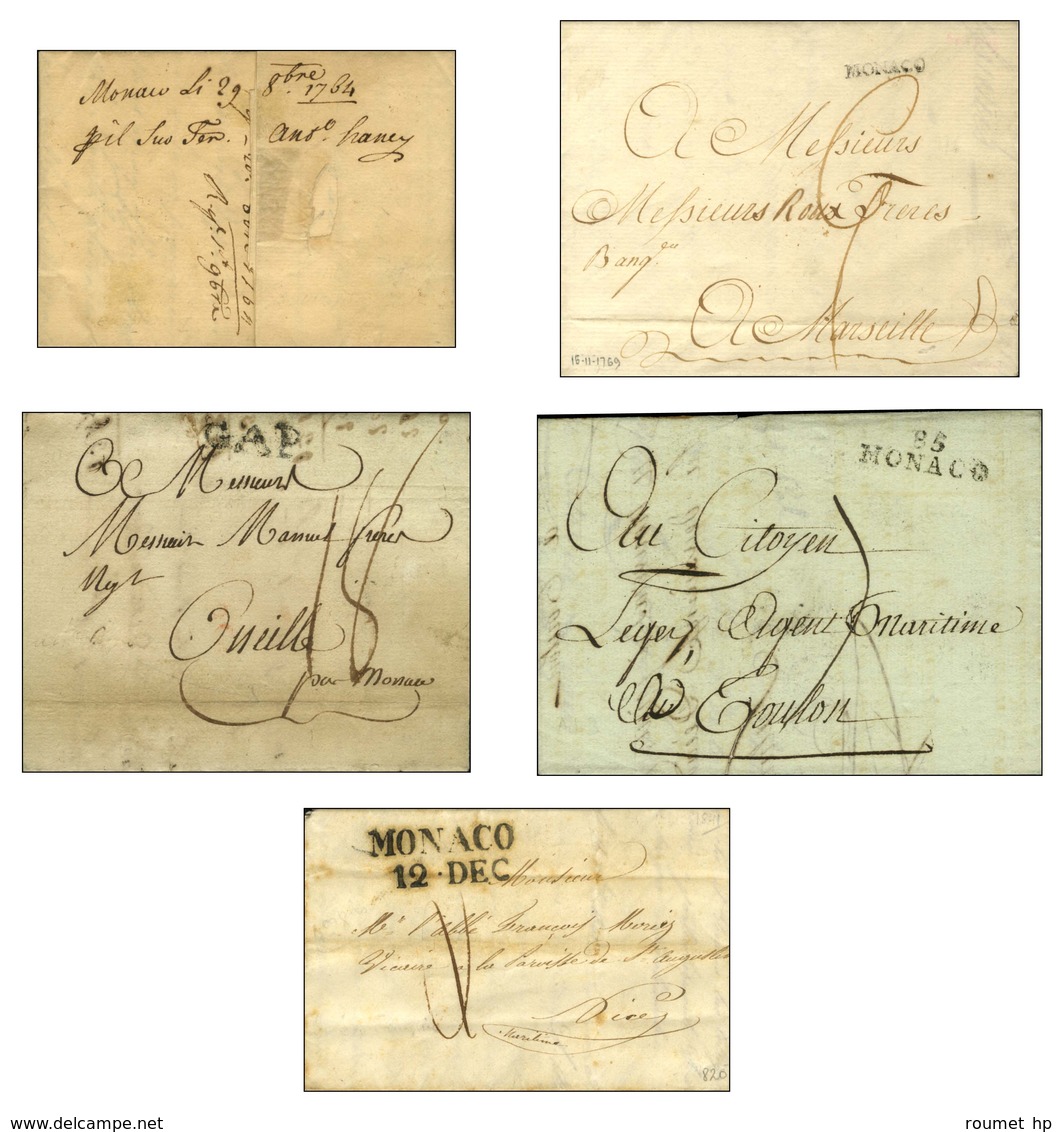 Monaco Li 29 8.bre 1764
MONACO
A Messieurs
Messieurs Roux Freres
Banq.
A Marseille
15-11-1769
GAP
A Messieurs
Messieurs Manuel freres
Negt
Oneille
par Monaco
18
85
MONACO
Au Citoyen
Leger, Agent Maritime
Au Toulon
MONACO
12·DEC
Monsieur
Mr l'abbé François
Vicaire à la Paroisse de St Augustin
Nice
Maritime
820
www.delcampe.net
roumet hp